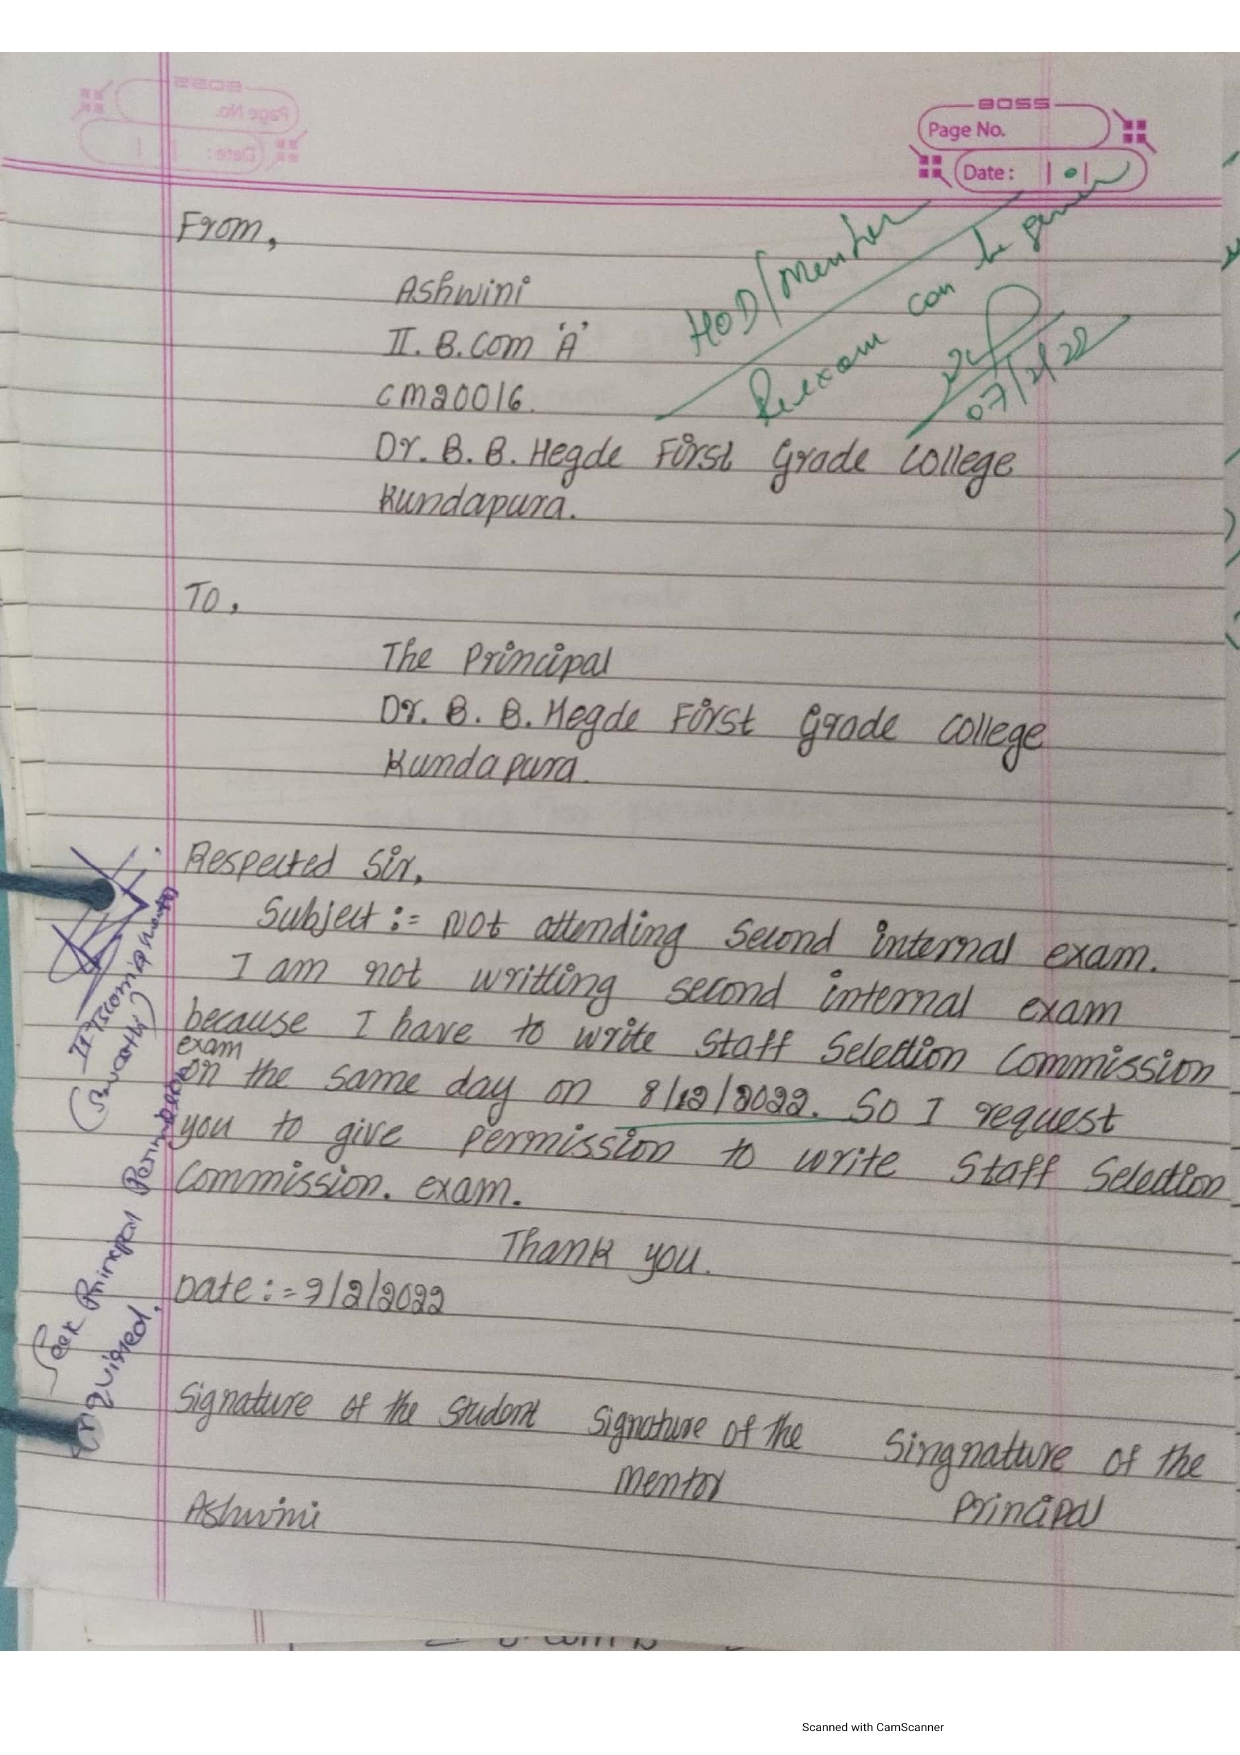 BOSS
Page No.
Date:
HOD/Mentor
Reexam can be given
07/2/22
From,
Ashwini
II. B.Com 'A'
CM20016.
Dr. B. B. Hegde First Grade College
Kundapura.
To,
The Principal
Dr. B. B. Hegde First Grade College
Kundapura.
Respected Sir,
Subject := Not attending Second internal exam.
I am not writting second internal exam
because I have to write Staff Selection Commission
exam
on the same day on 8/12/2022. So I request
you to give permission to write Staff Selection
Commission. exam.
Thank you.
Date := 7/2/2022
Signature of the Student Signature of the Singnatture of the
Mentor Principal
Ashwini
II Bcom
(Swathi)
Seek Principal Permission
required.
Scanned with CamScanner